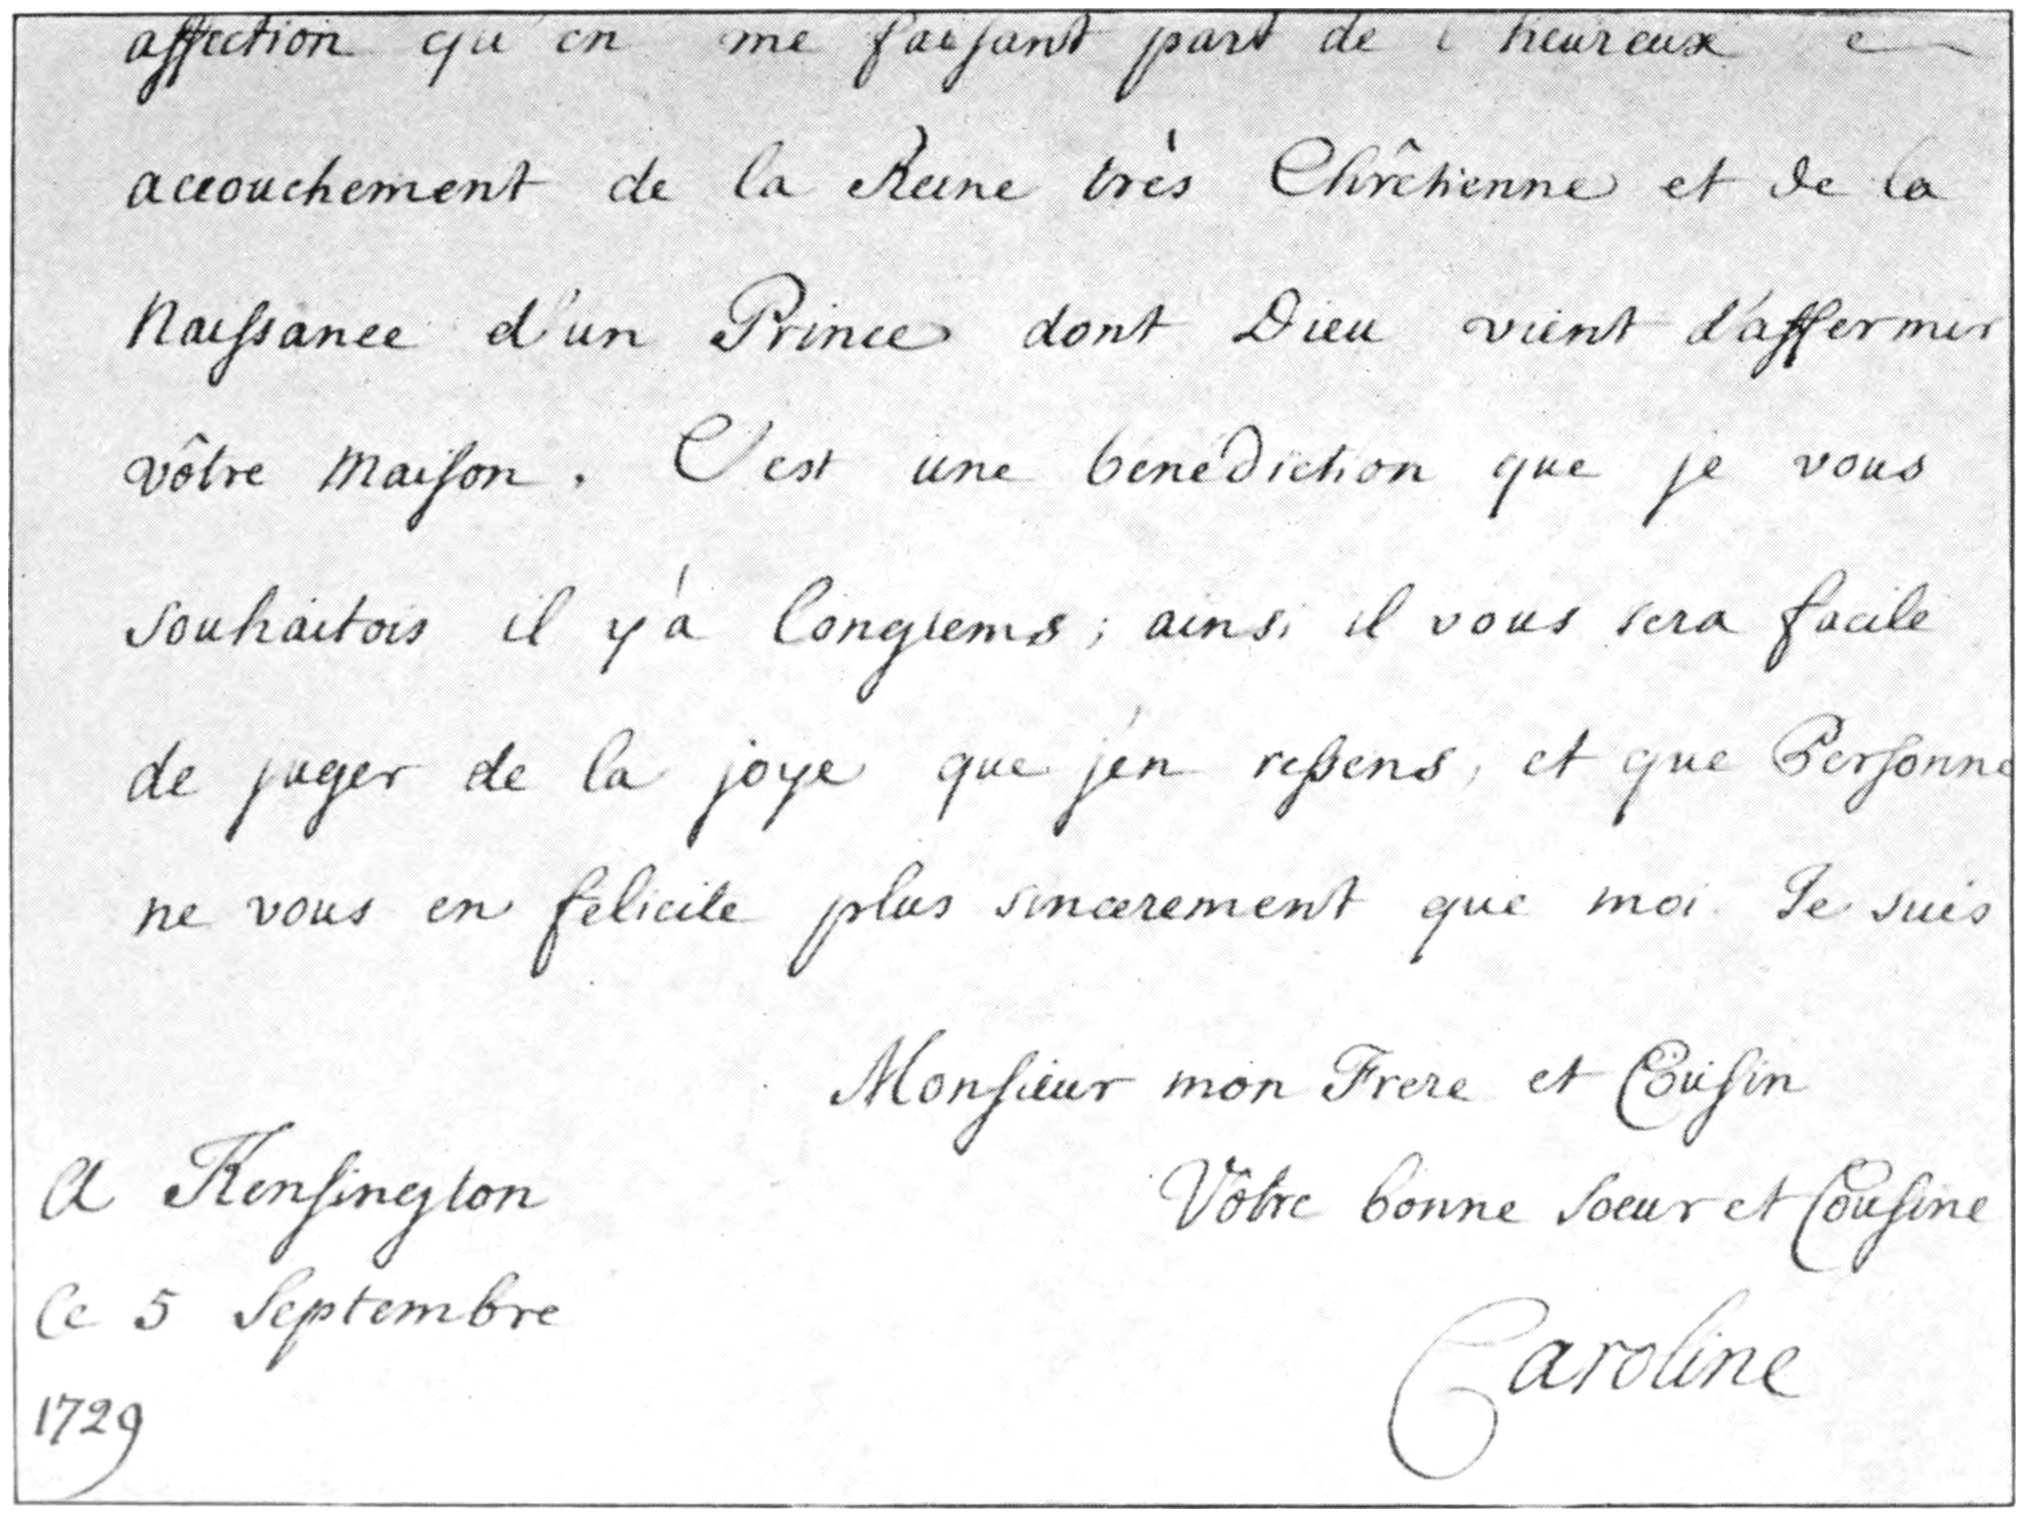 affection qu'en me faisant part de l'heureux
accouchement de la Reine très Chrêtienne et de la
Naissance d'un Prince dont Dieu vient d'affermir
vôtre Maison. C'est une bénédiction que je vous
souhaitois il y'a longtems; ainsi il vous sera facile
de juger de la joye que j'en ressens, et que Personne
ne vous en félicite plus sincerement que moi. Je suis
Monsieur mon Frere et Cousin
A Kensington
Vôtre bonne soeur et Cousine
Ce 5 Septembre
Caroline
1729